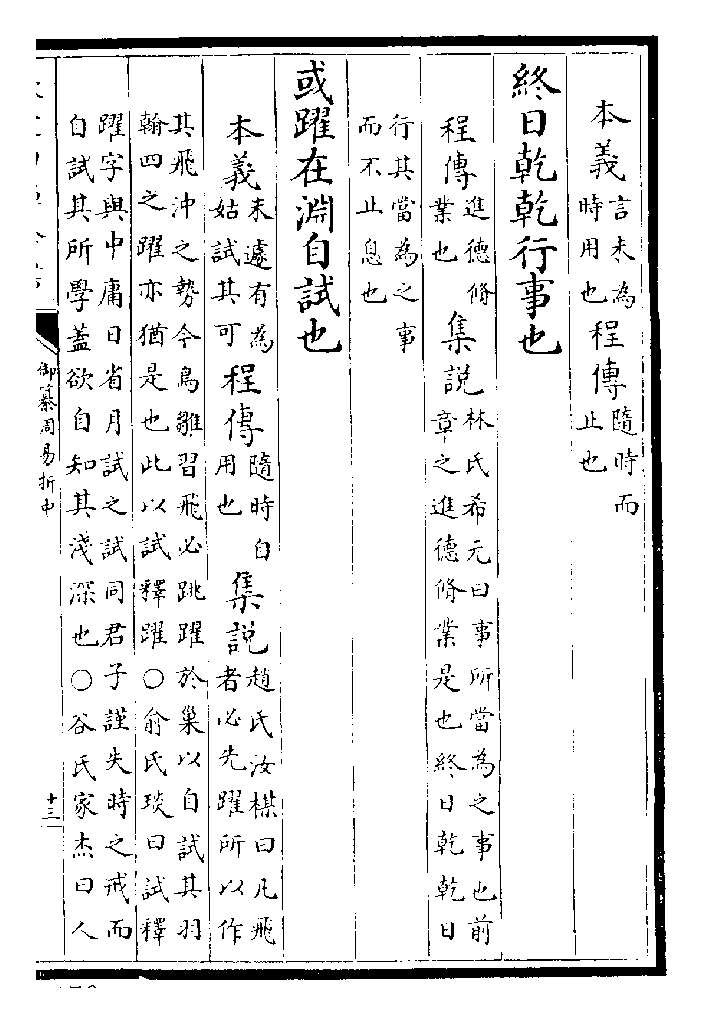 本義言未為時用也程傳隨時而止也
終日乾乾行事也
程傳進德脩業也集說林氏希元曰事所當為之事也前章之進德脩業是也終日乾乾日
行其當為之事而不止息也
或躍在淵自試也
本義未遽有為姑試其可程傳隨時自用也集說趙氏汝楳曰凡飛者必先躍所以作
其飛沖之勢今鳥雛習飛必跳躍於巢以自試其羽
翰四之躍亦猶是也此以試釋躍○俞氏琰曰試釋
躍字與中庸日省月試之試同君子謹失時之戒而
自試其所學蓋欲自知其淺深也○谷氏家杰曰人
御纂周易折中
十三